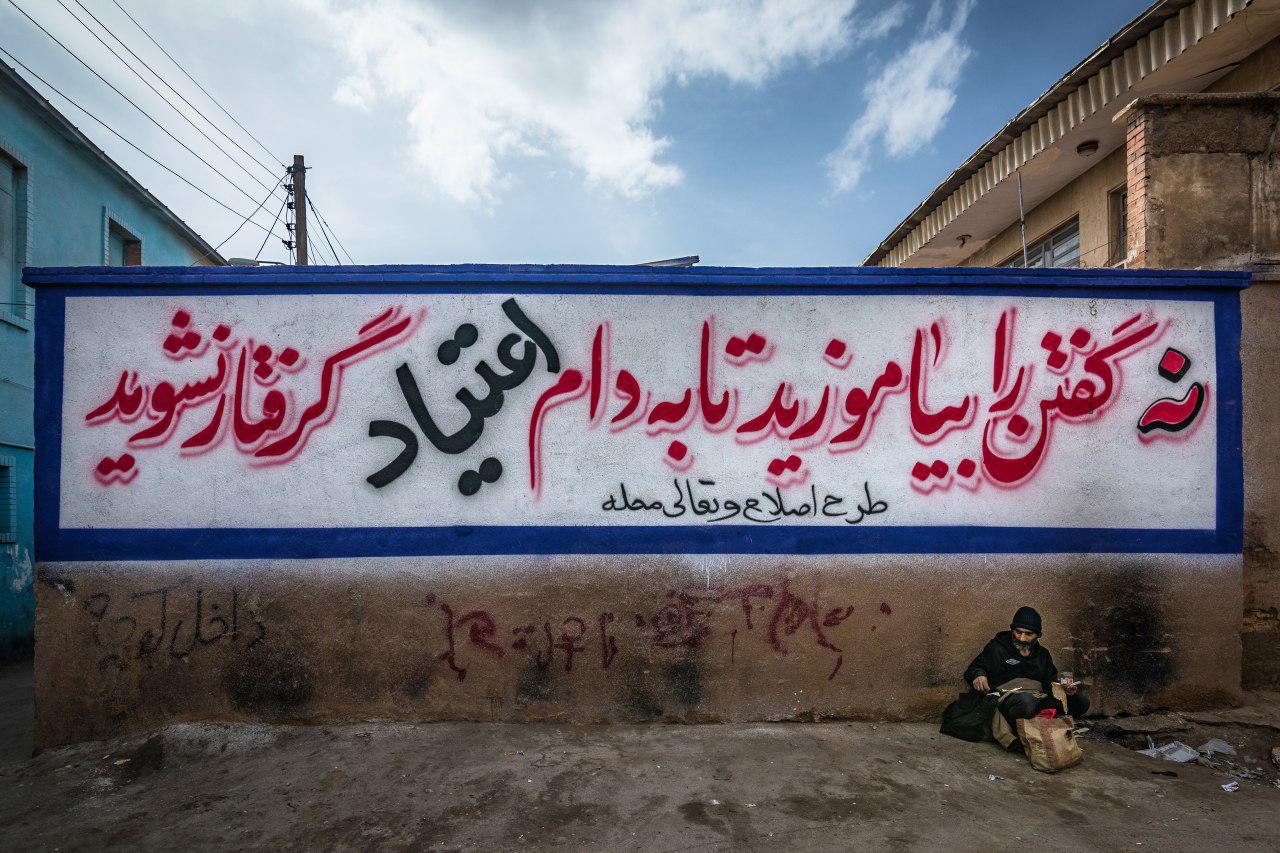 نه گفتن را بیاموزید تا به دام اعتیاد گرفتار نشوید
طرح اصلاح و تعالی محله
داخل کوچه